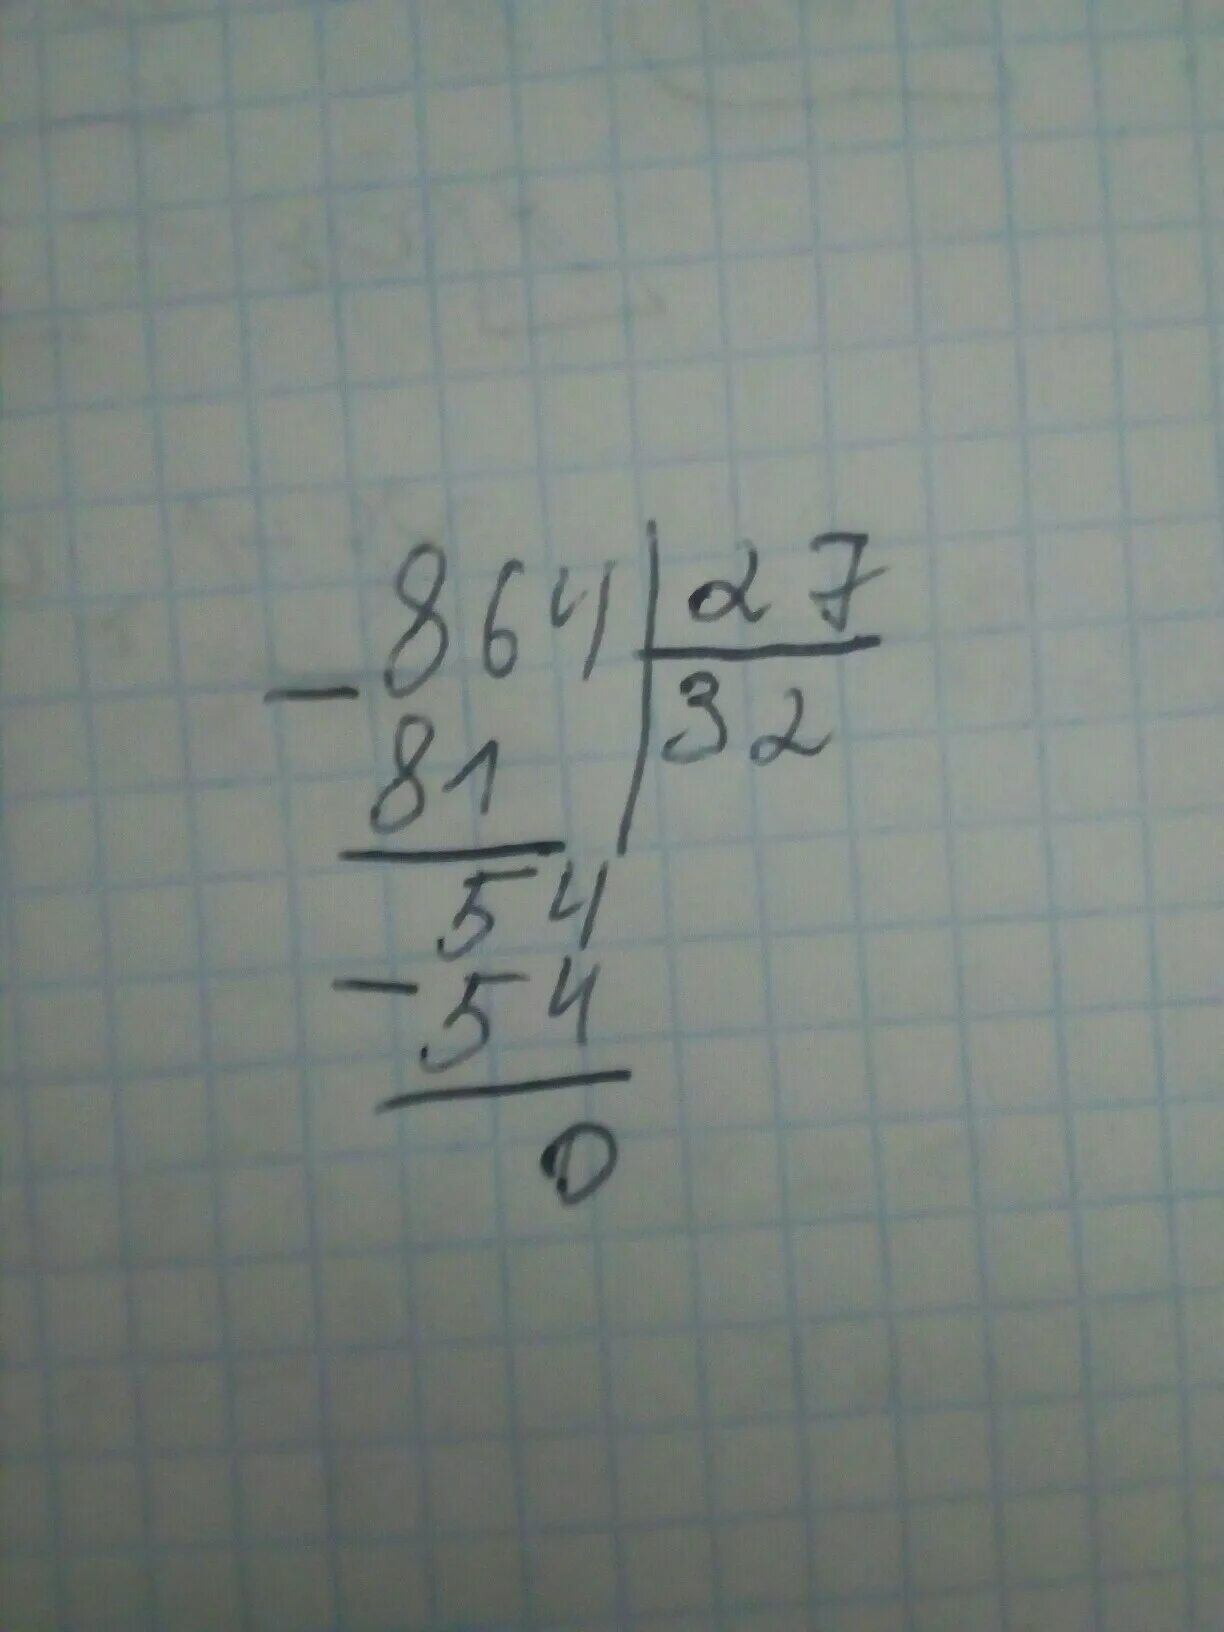 - 864 | 27
81 | 32
54
- 54
0